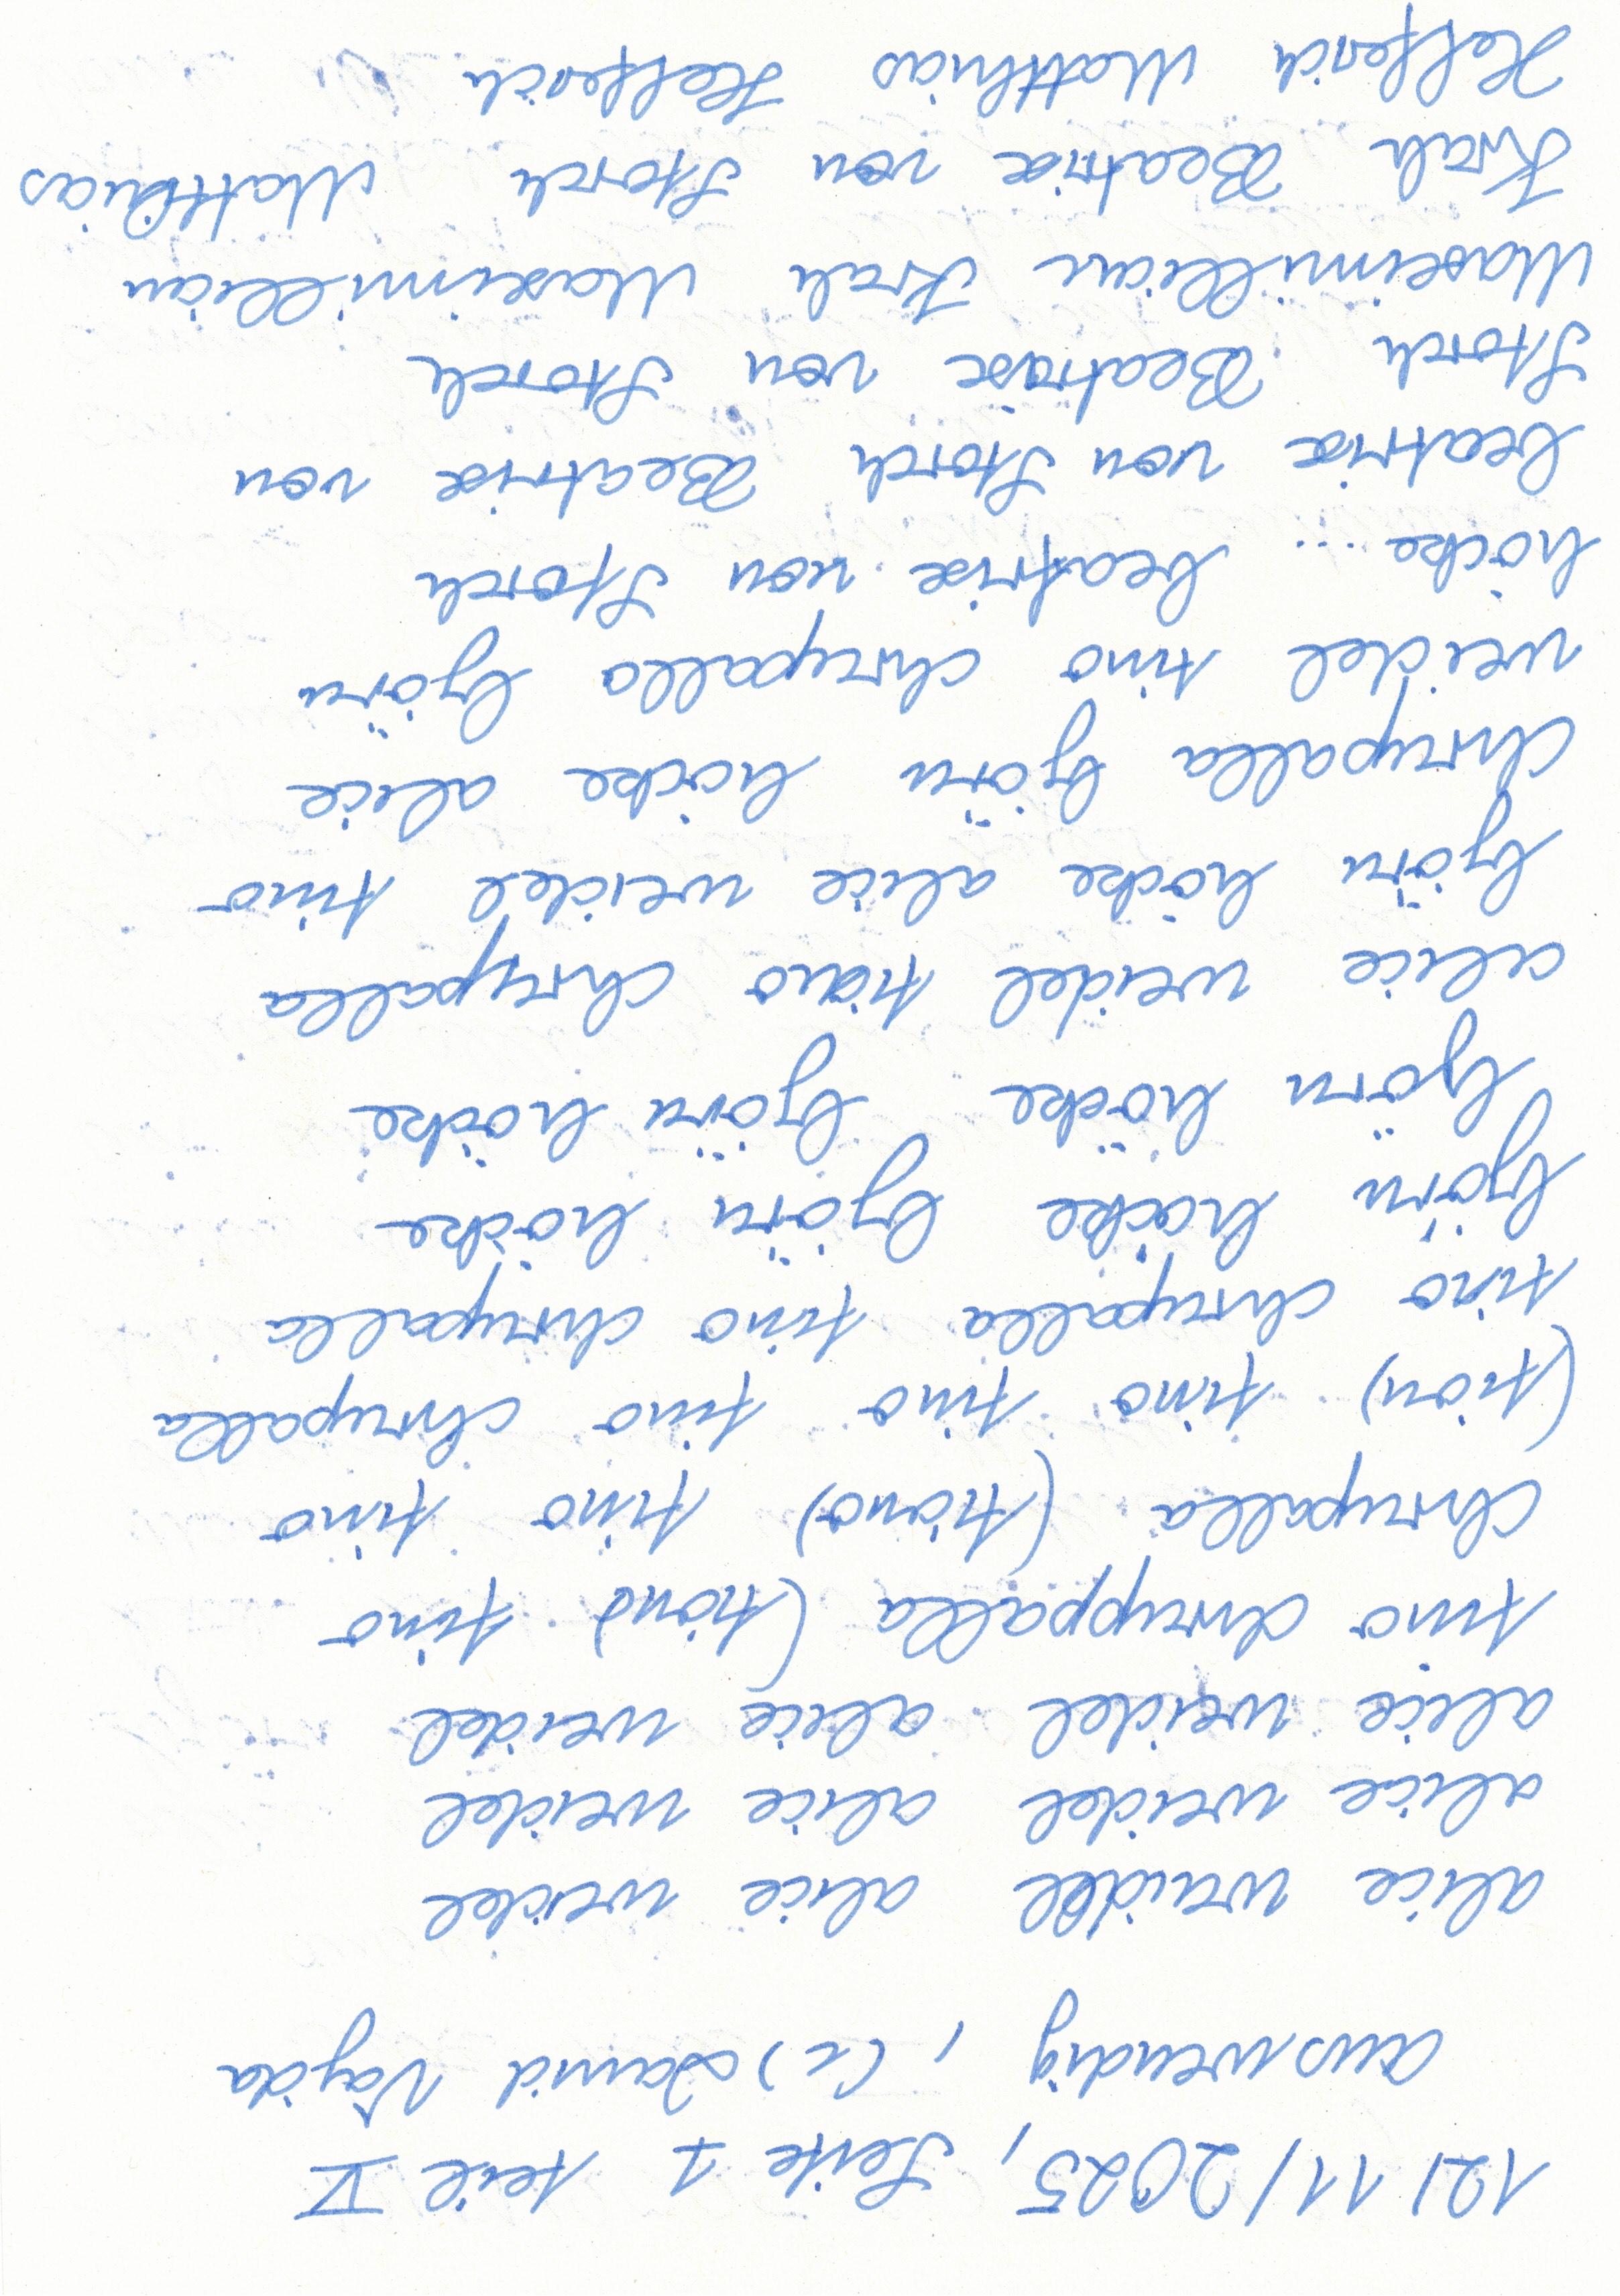 12/11/2025, Seite 1 teil V
auswendig, (c) David Vajda
alice weidel alice weidel
alice weidel alice weidel
alice weidel alice weidel
tino chruppalla (tion) tino
chrupalla (tiono) tino tino
(tion) tino tino tino chrupalla
tino chrupalla tino chrupalla
björn höcke björn höcke
björn höcke björn höcke
alice weidel tiono chrupalla
björn höcke alice weidel tino
chrupalla björn höcke alice
weidel tino chrupalla björn
höcke ... beatrix von Storch
beatrix von Storch Beatrix von
Storch Beatrix von Storch
Maximillian Krah Maximillian
Krah Beatrix von Storch Matthias
Helferich Matthias Helferich